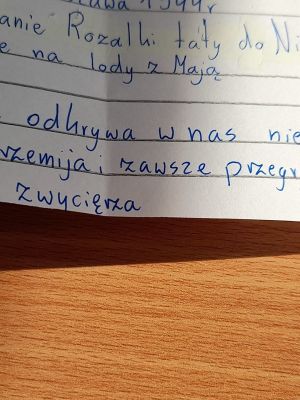 1944r
anie Rozalki taty do Ni
e na lody z Mają
odkrywa w nas nie
rzemija i zawsze przegr
zwycięrza